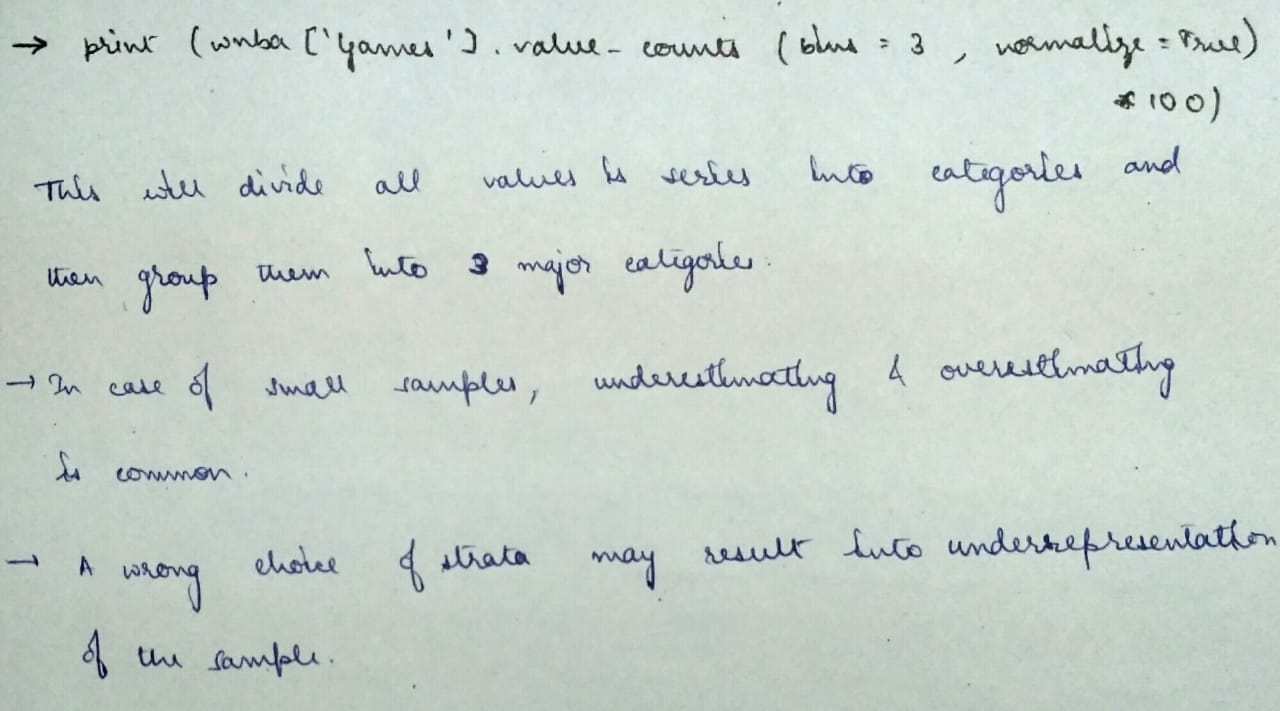 → print (wnba ['Games'] . value_counts (bins = 3 , normalize = True)
* 100)
This will divide all values is series into categories and
then group them into 3 major categories.
→ In case of small samples, underestimating & overestimating
is common.
→ A wrong choice of strata may result into underrepresentation
of the sample.